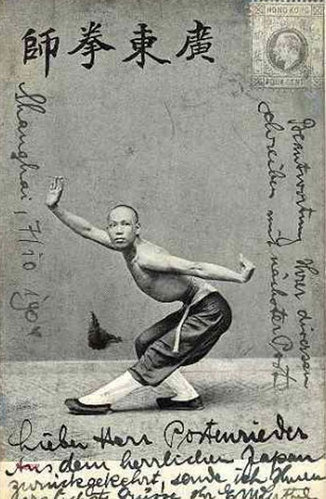 師拳東廣
HONG KONG
Shanghai, 7/10
Beantwortung Ihrer diversen
schreiben mit nächster Post.
Lieber Herr Postenrieder
Aus dem herrlichen Japan
zurückgekehrt, sende ich Ihnen
Grüsse